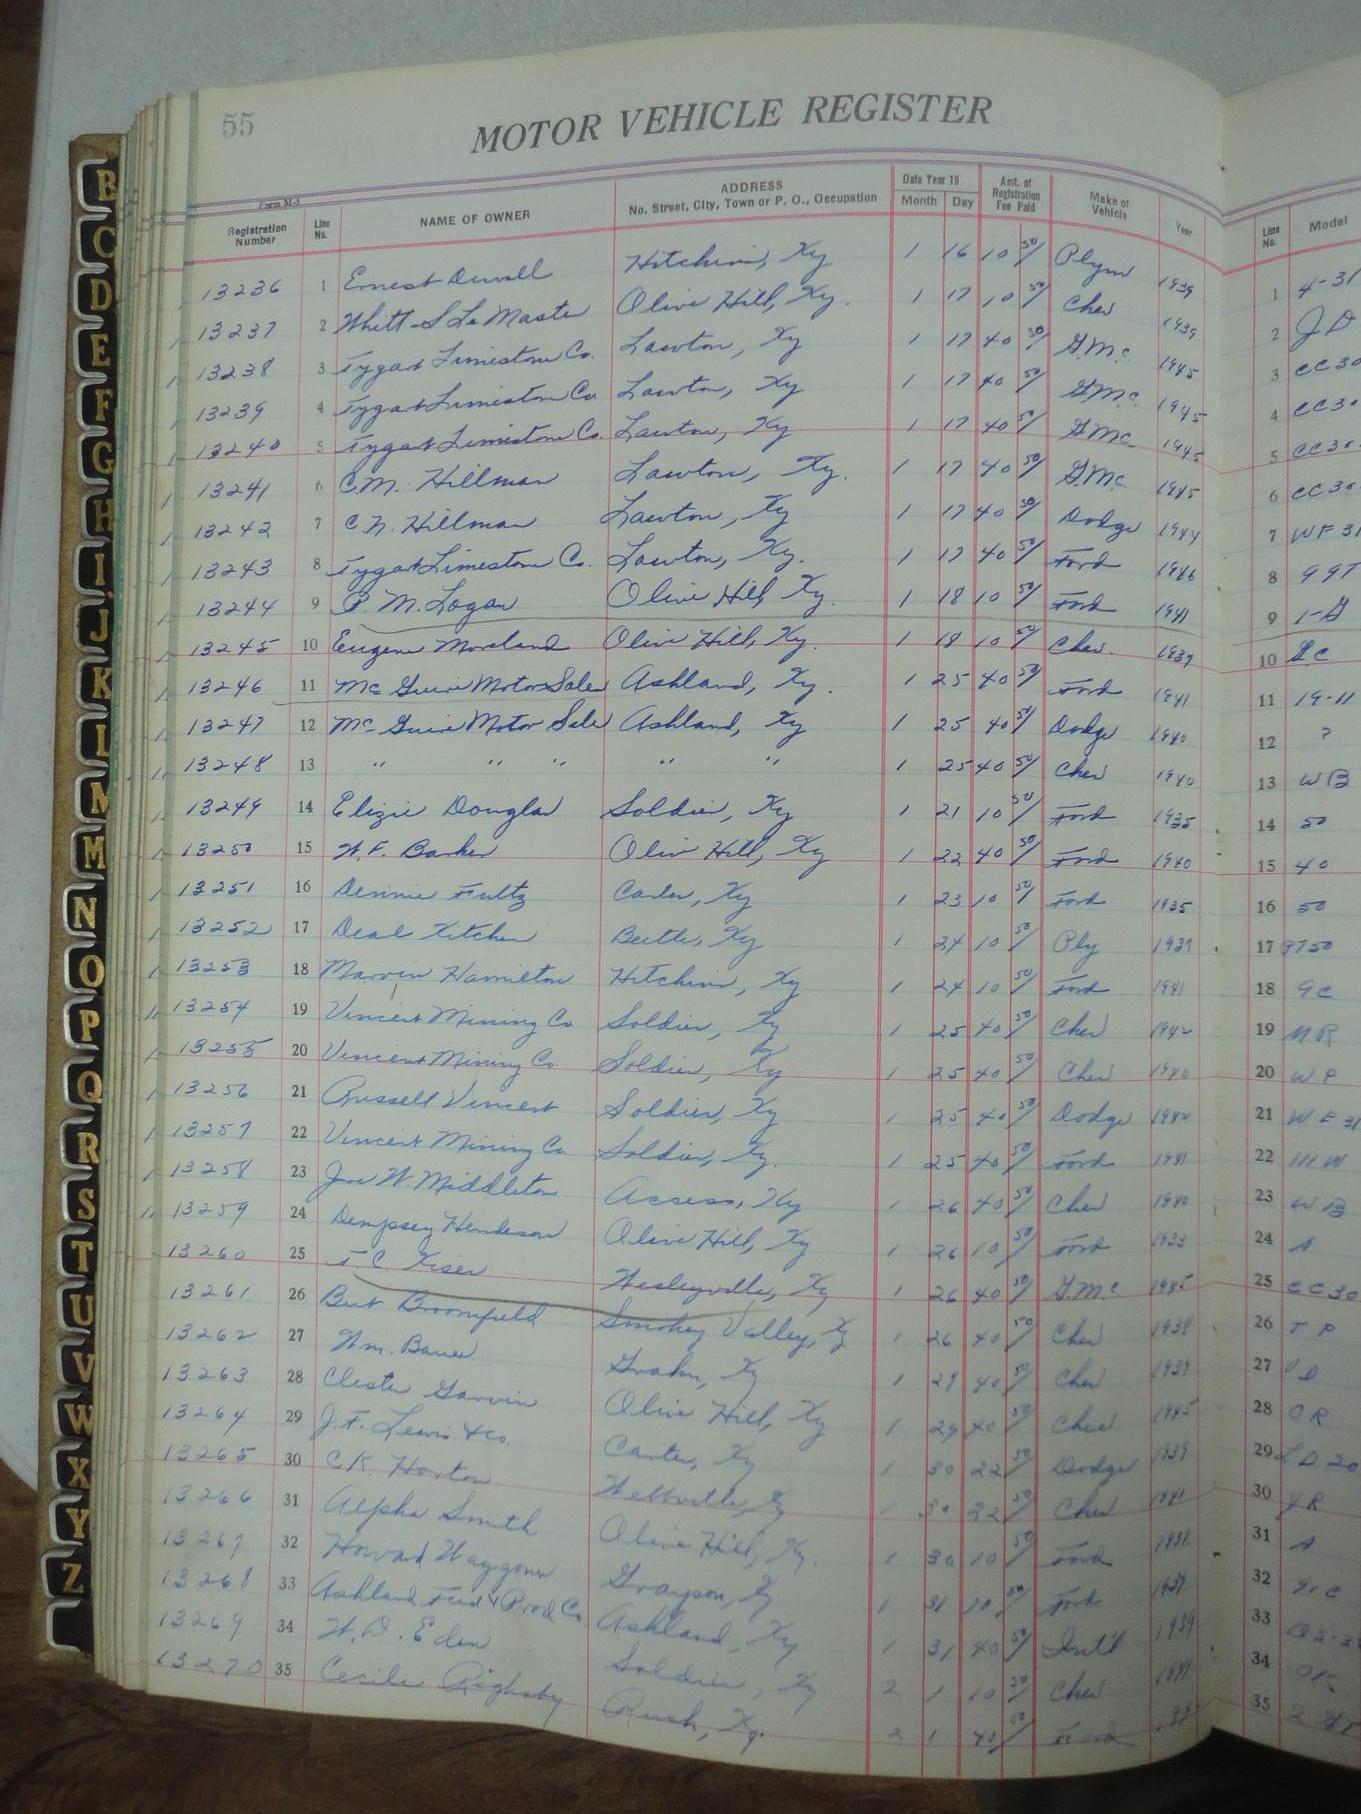 55
MOTOR VEHICLE REGISTER
Form M-5
Registration Number Line No. NAME OF OWNER ADDRESS No. Street, City, Town or P. O., Occupation Date Year 19 Month Day Amt. of Registration Fee Paid Make of Vehicle Year Line No. Model
13236 1 Ernest Duvall Hitchins, Ky 1 16 10 50/ Plym 1939 1 4-31
13237 2 Whitt S Le Master Olive Hill, Ky. 1 17 10 50/ Chev 1939 2 JD
13238 3 Tygart Limestone Co. Lawton, Ky 1 17 40 50/ G.M.C. 1945 3 CC30
13239 4 Tygart Limestone Co. Lawton, Ky 1 17 40 50/ G.M.C. 1945 4 CC30
13240 5 Tygart Limestone Co. Lawton, Ky 1 17 40 50/ G.M.C. 1945 5 CC30
13241 6 C.M. Hillman Lawton, Ky. 1 17 40 50/ G.M.C. 1945 6 CC30
13242 7 C.N. Hillman Lawton, Ky 1 17 40 50/ Dodge 1944 7 WF31
13243 8 Tygart Limestone Co. Lawton, Ky. 1 17 40 50/ Ford 1946 8 99T
13244 9 P. M. Logan Olive Hill, Ky. 1 18 10 50/ Ford 1941 9 1-G
13245 10 Eugene Moreland Olive Hill, Ky. 1 18 10 50/ Chev. 1937 10
13246 11 Mc Guire Motor Sales Ashland, Ky. 1 25 40 50/ Ford 1941 11 19-11
13247 12 Mc Guire Motor Sale Ashland, Ky 1 25 40 50/ Dodge 1940 12 ?
13248 13 " " " " " 1 25 40 50/ Chev 1940 13 WB
13249 14 Elizie Douglas Soldier, Ky 1 21 10 50/ Ford 1935 14 50
13250 15 W.F. Barker Olive Hill, Ky 1 22 40 50/ Ford 1940 15 40
13251 16 Dennie Fultz Carter, Ky 1 23 10 50/ Ford 1935 16 50
13252 17 Deal Kitchen Beetle, Ky 1 24 10 50/ Ply 1937 17 PT50
13253 18 Marvin Hamilton Hitchins, Ky 1 24 10 50/ Ford 1941 18 GC
13254 19 Vincent Mining Co Soldier, Ky 1 25 40 50/ Chev 1942 19 MR
13255 20 Vincent Mining Co. Soldier, Ky 1 25 40 50/ Chev 1940 20 WP
13256 21 Russell Vincent Soldier, Ky 1 25 40 50/ Dodge 1942 21 WF31
13257 22 Vincent Mining Co. Soldier, Ky. 1 25 40 50/ Ford 1941 22 111W
13258 23 Joe W. Middleton Access, Ky 1 26 40 50/ Chev 1940 23 WB
13259 24 Dempsey Henderson Olive Hill, Ky 1 26 10 50/ Ford 1933 24 A
13260 25 T. C Kiser Wesleyville, Ky 1 26 40 50/ G.M.C 1945 25 CC30
13261 26 Burt Broomfield Smokey Valley, Ky 1 26 40 50/ Chev 1938 26 TP
13262 27 Wm. Bauer Grahn, Ky 1 29 40 50/ Chev 1939 27
13263 28 Clester Garvin Olive Hill, Ky 1 29 40 50/ Chev 1945 28 OR
13264 29 J.F. Lewis & Co. Carter, Ky 1 30 22 50/ Dodge 1939 29
13265 30 C.K. Horton Webbville, Ky 1 30 22 50/ Chev 1941 30 YR
13266 31 Alpha Smith Olive Hill, Ky. 1 30 10 50/ Ford 1931 31 A
13267 32 Howard Waggoner Grayson, Ky 1 31 10 50/ Ford 1937 32
13268 33 Ashland Fuel & Prod Co. Ashland, Ky 1 31 40 50/ Int'l 1939 33
13269 34 W.D. Eden Soldier, Ky 2 1 10 50/ Chev 34
13270 35 Cecile Righsby Rush, Ky. 2 1 Ford 35
B
C
D
E
F
G
H
I
J
K
L
M
M
N
O
P
Q
R
S
T
U
V
W
X
Y
Z